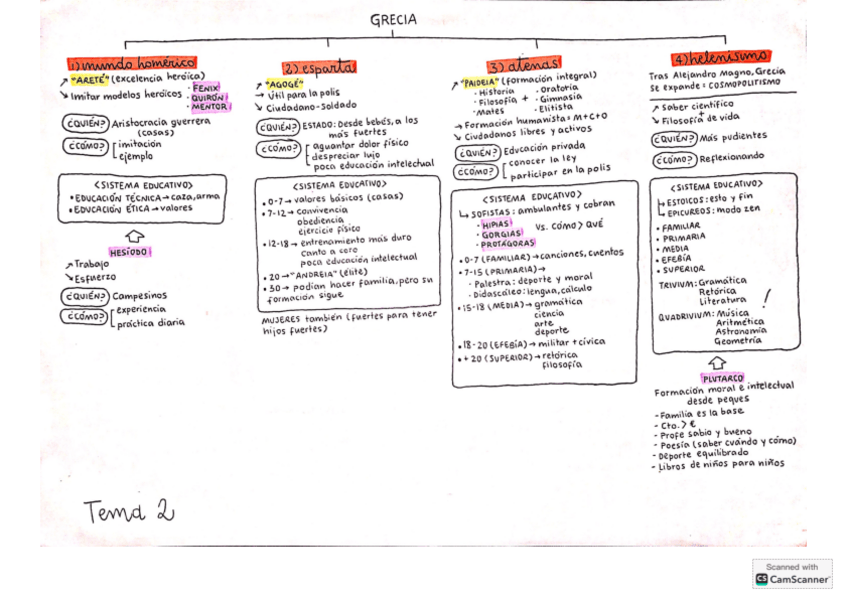 GRECIA
1) mundo homérico
↗ "ARETÉ" (excelencia heroica)
↘ Imitar modelos heroicos
· FENIX
· QUIRÓN
· MENTOR
¿QUIÉN? Aristocracia guerrera
(casas)
¿CÓMO? imitación
ejemplo
<SISTEMA EDUCATIVO>
• EDUCACIÓN TÉCNICA → caza, arma
• EDUCACIÓN ÉTICA → valores
HESÍODO
↗ Trabajo
↘ Esfuerzo
¿QUIÉN? Campesinos
¿CÓMO? experiencia
práctica diaria
2) esparta
↗ "AGOGÉ"
→ Útil para la polis
↘ Ciudadano-Soldado
¿QUIÉN? ESTADO: Desde bebés, a los
más fuertes
¿CÓMO? aguantar dolor físico
despreciar lujo
poca educación intelectual
<SISTEMA EDUCATIVO>
• 0-7 → valores básicos (casas)
• 7-12 → convivencia
obediencia
ejercicio físico
• 12-18 → entrenamiento más duro
canto a coro
poca educación intelectual
• 20 → "ANDREIA" (élite)
• 30 → podían hacer familia, pero su
formación sigue
MUJERES también (fuertes para tener
hijos fuertes)
3) atenas
↗ "PAIDEIA" (formación integral)
· Historia · Oratoria
· Filosofía + · Gimnasia
· Mates · Elitista
→ Formación humanista = M+Cto
↘ Ciudadanos libres y activos
¿QUIÉN? Educación privada
¿CÓMO? conocer la ley
participar en la polis
<SISTEMA EDUCATIVO>
↳ SOFISTAS: ambulantes y cobran
· HIPIAS
· GORGIAS
· PROTÁGORAS
VS. CÓMO > QUÉ
• 0-7 (FAMILIAR) → canciones, cuentos
• 7-15 (PRIMARIA) →
· Palestra: deporte y moral
· Didascáleo: lengua, cálculo
• 15-18 (MEDIA) → gramática
ciencia
arte
deporte
• 18-20 (EFEBÍA) → militar + cívica
• +20 (SUPERIOR) → retórica
filosofía
4) helenismo
Tras Alejandro Magno, Grecia
se expande = COSMOPOLITISMO
↗ Saber científico
+
↘ Filosofía de vida
¿QUIÉN? Más pudientes
¿CÓMO? Reflexionando
<SISTEMA EDUCATIVO>
↳ ESTOICOS: esto y fin
↳ EPICUREOS: modo zen
• FAMILIAR
• PRIMARIA
• MEDIA
• EFEBÍA
• SUPERIOR
TRIVIUM: Gramática
Retórica
Literatura !
QUADRIVIUM: Música
Aritmética
Astronomía
Geometría
PLUTARCO
Formación moral e intelectual
desde peques
- Familia es la base
- Cto. > €
- Profe sabio y bueno
- Poesía (saber cuándo y cómo)
- Deporte equilibrado
- Libros de niños para niños
Tema 2
Scanned with
CS CamScanner